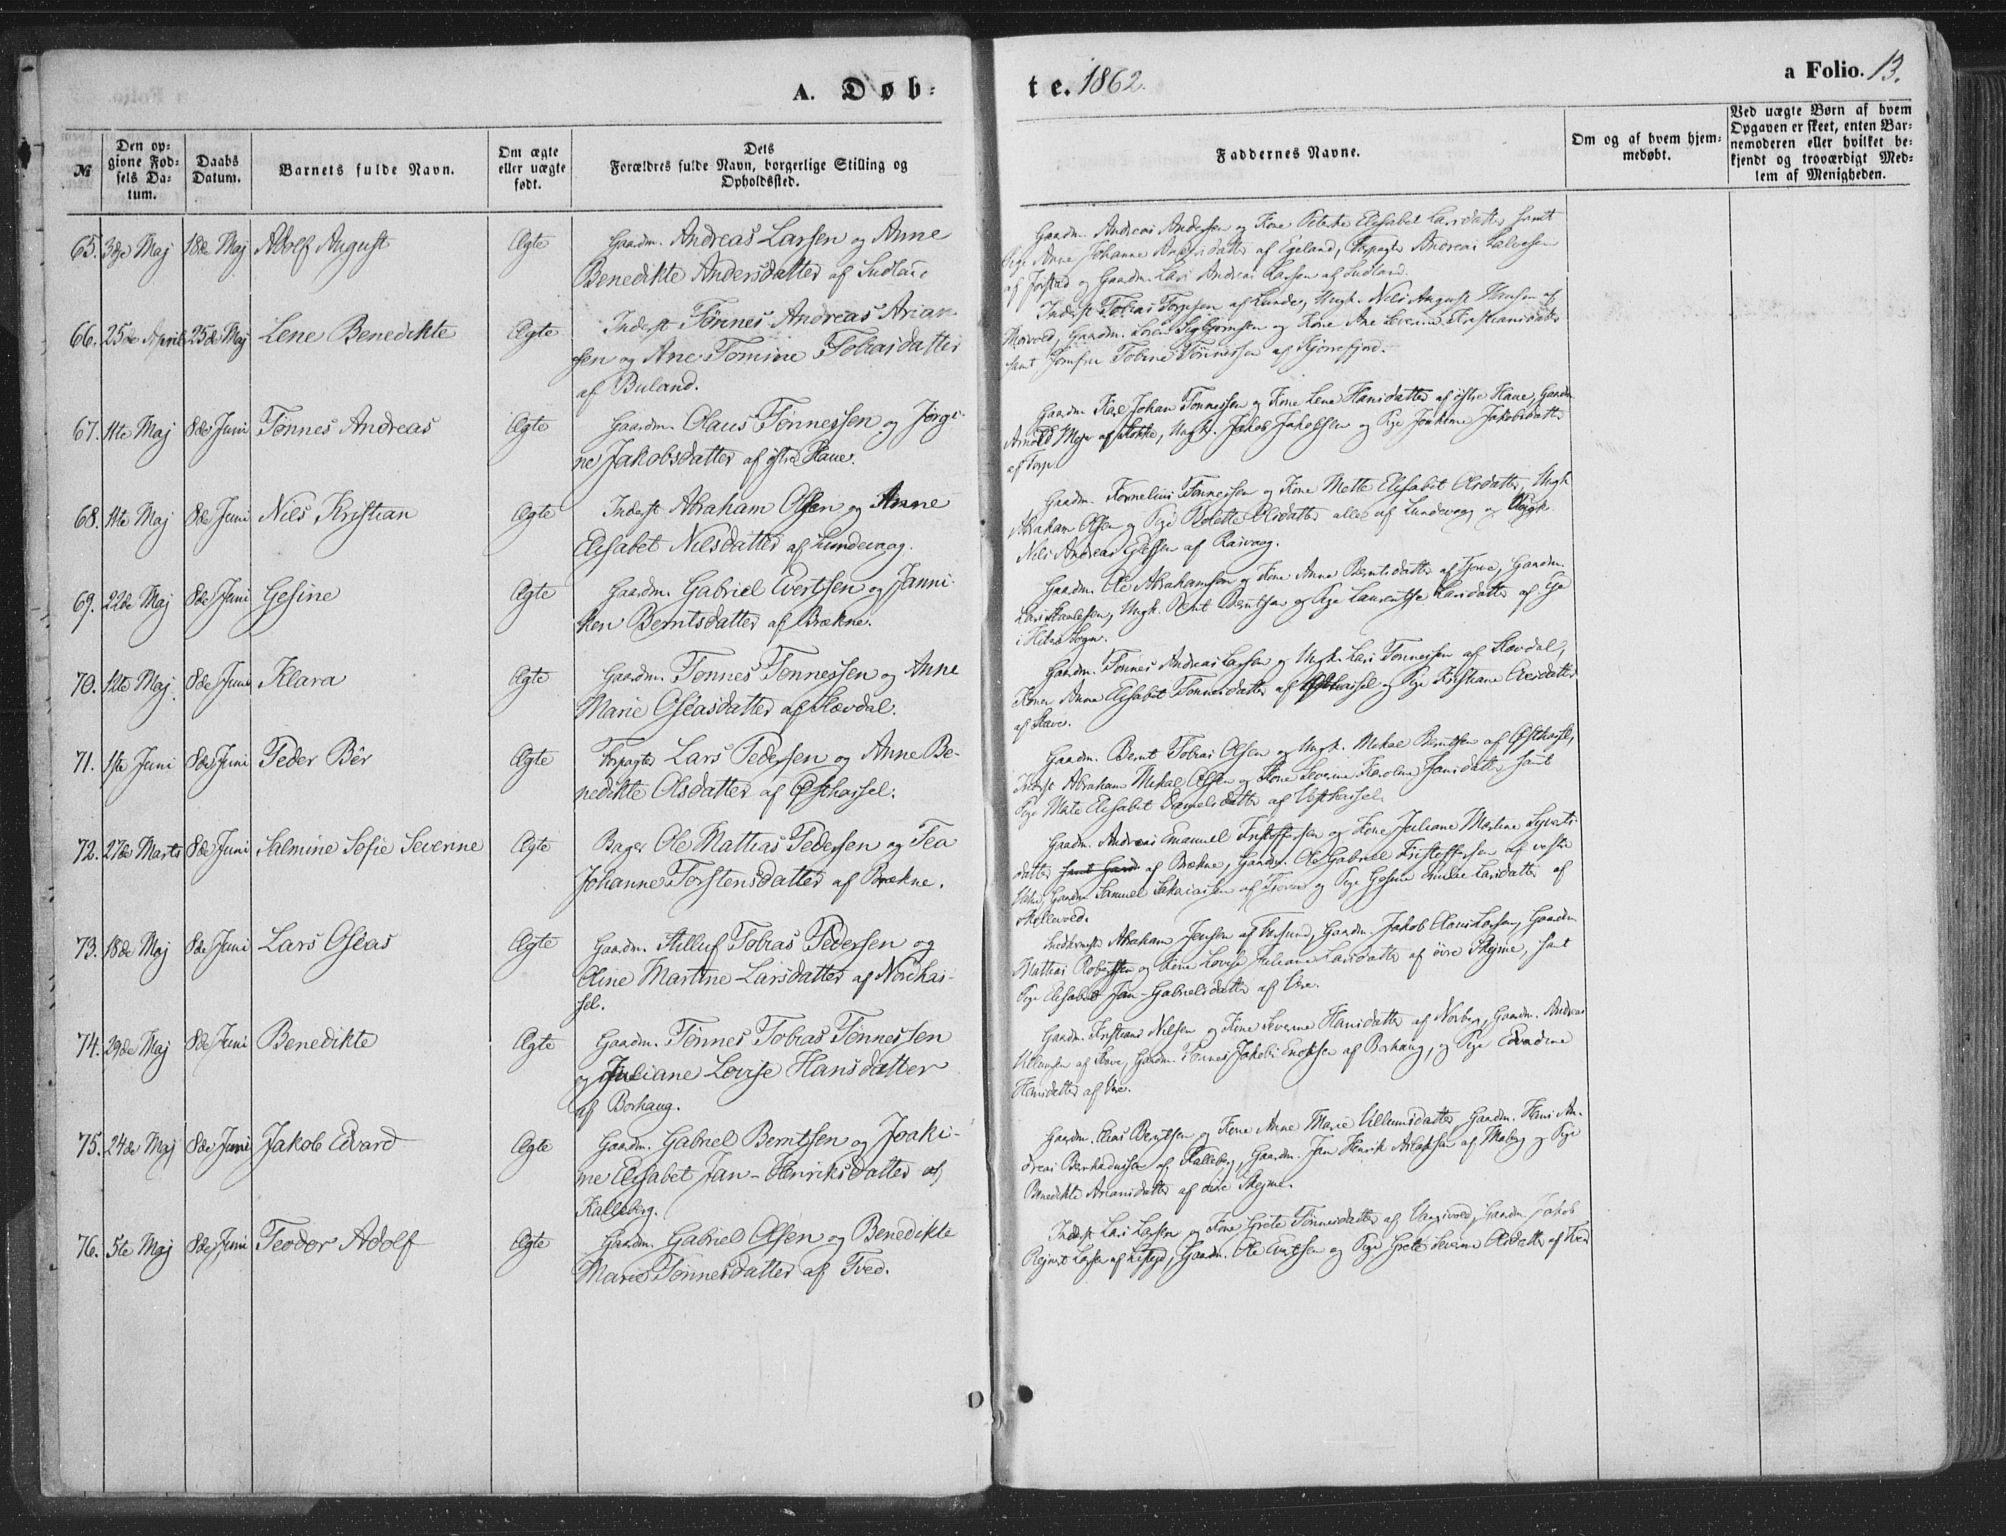 A. Døb-
te. 1862.
a Folio. 13.
№
Den op-
givne Fød-
sels Da-
tum.
Daabs
Datum.
Barnets fulde Navn.
Om ægte
eller uægte
født.
Dets
Forældres fulde Navn, borgerlige Stilling og
Opholdssted.
Faddernes Navne.
Om og af hvem hjem-
medøbt.
Ved uægte Børn af hvem
Opgaven er skeet, enten Bar-
nemoderen eller hvilket be-
kjendt og troværdigt Med-
lem af Menigheden.
65. 3die Maj 18de Maj Adolf August Ægte Gaardm. Andreas Larsen og Anne
Benedikte Andersdatter af Sudland
Gaardm. Andreas Andersen og Kone Petrike Elisabet Larsdatter samt
Pige Anne Johanne Andersdatter af Egeland, Forpagter Andreas Salvesen
af Jørstad og Gaardm. Lars Andreas Larsen af Sudland.
66. 25de April 25de Maj Lene Benedikte Ægte Inderst Tønnes Andreas Arian-
sen og Ane Tomine Tobiasdatter
af Buland.
Inderst Tobias Torjesen af Lunde, Ungk. Nils August Hansen af
Gaardm. Søren Sigbjørnsen og Kone Ane Severine Kristiansdatter
samt Jomfru Tobine Tønnessen af
67. 11te Maj 8de Juni Tønnes Andreas Ægte Gaardm. Olaus Tønnessen og Jørgi-
ne Jakobsdatter af østre Haue.
Gaardm. Karl Johan Tønnessen og Kone Lene Hansdatter af østre Haue, Gaardm.
Arnold Meyer af Ungk. Jakob Jakobsen og Pige Joakime Jakobsdatter
af Torp.
68. 11te Maj 8de Juni Nils Kristian Ægte Inderst Abraham Olsen og Anne
Elisabet Nilsdatter af Lundevaag.
Gaardm. Kornelius Tønnessen og Kone Mette Elisabet Olsdatter, Ungk.
Abraham Olsen og Pige Olette Olsdatter alle af Lundevaag og Ungk.
Nils Andreas af Rasvaag.
69. 22de Maj 8de Juni Gesine Ægte Gaardm. Gabriel Evertsen og Janni-
ken Berntsdatter af Brækne.
Gaardm. Ole Abrahamsen og Kone Anne Berntsdatter af Tjøve, Gaardm.
Ungk. Bernt Berntsen og Pige Laurentse Larsdatter af
i Hitterø Sogn.
70. 12te Maj 8de Juni Klara Ægte Gaardm. Tønnes Tønnessen og Anne
Marie Oseasdatter af Skovdal.
Gaardm. Tønnes Andreas Larsen og Ungk. Lars Tønnessen af Skovdal,
Konen Anne Elisabet Tønnesdatter af Østhassel og Pige Kristiane Oseasdatter
af Stave.
71. 1ste Juni 8de Juni Peder Bêr Ægte Forpagter Lars Pedersen og Anne Be-
nedikte Olsdatter af Østhassel.
Gaardm. Bernt Tobias Olsen og Ungk. Mikal Berntsen af Østhassel,
Inderst Abraham Mikal Olsen og Kone Severine Karoline Jansdatter samt
Pige Male Elisabet Danielsdatter af Vesthassel.
72. 27de Marts 8de Juni Salmine Sofie Severine Ægte Bager Ole Mattias Pedersen og Tea
Johanne Torstensdatter af Brekne.
Gaardm. Andreas Emanuel Kristoffersen og Kone Juliane Martine Syverts-
datter af Brekne, Gaardm. Ole Gabriel Kristoffersen af vestre
Gaardm. Samuel Sakariassen af og Pige Gesine Larsdatter af
Møllevold.
73. 18de Maj 8de Juni Lars Oseas Ægte Gaardm. Filluf Tobias Pedersen og
Oline Martine Larsdatter af Nordhas-
sel.
Abraham Jensen af Farsund, Gaardm. Jakob Olaus Larsen, Gaardm.
Mathias Robertsen og Kone Lovise Juliane Larsdatter af øvre Skeime, samt
Pige Elisabet Jan-Gabrielsdatter af Øre.
74. 29de Maj 8de Juni Benedikte Ægte Gaardm. Tønnes Tobias Tønnessen
og Juliane Lovise Hansdatter
af Borhaug.
Gaardm. Kristian Nilsen og Kone Severine Hansdatter af Norberg, Gaardm. Andreas
Villumsen af Stave, Gaardm. Tønnes Jakob Enoksen af Borhaug, og Pige Edvardine
Hansdatter af Øre.
75. 24de Maj 8de Juni Jakob Edvard Ægte Gaardm. Gabriel Berntsen og Joaki-
me Elisabet Jan-Henriksdatter af
Kalleberg.
Gaardm. Elias Berntsen og Kone Anne Marie Villumsdatter, Gaardm. Hans An-
dreas Bernhardussen af Kalleberg, Gaardm. Jan Henrik Aslaksen af Maberg og Pige
Benedikte Ariansdatter af øvre Skeime.
76. 5te Maj 8de Juni Teodor Adolf Ægte Gaardm. Gabriel Olsen og Benedikte
Marie Tønnesdatter af Tved.
Inderst Lars Larsen og Kone Grete Tønnesdatter af Vansevold, Gaardm. Jakob
Reinert Larsen af Gaardm. Ole Evertsen og Pige Grete Severine Olsdatter af Tved